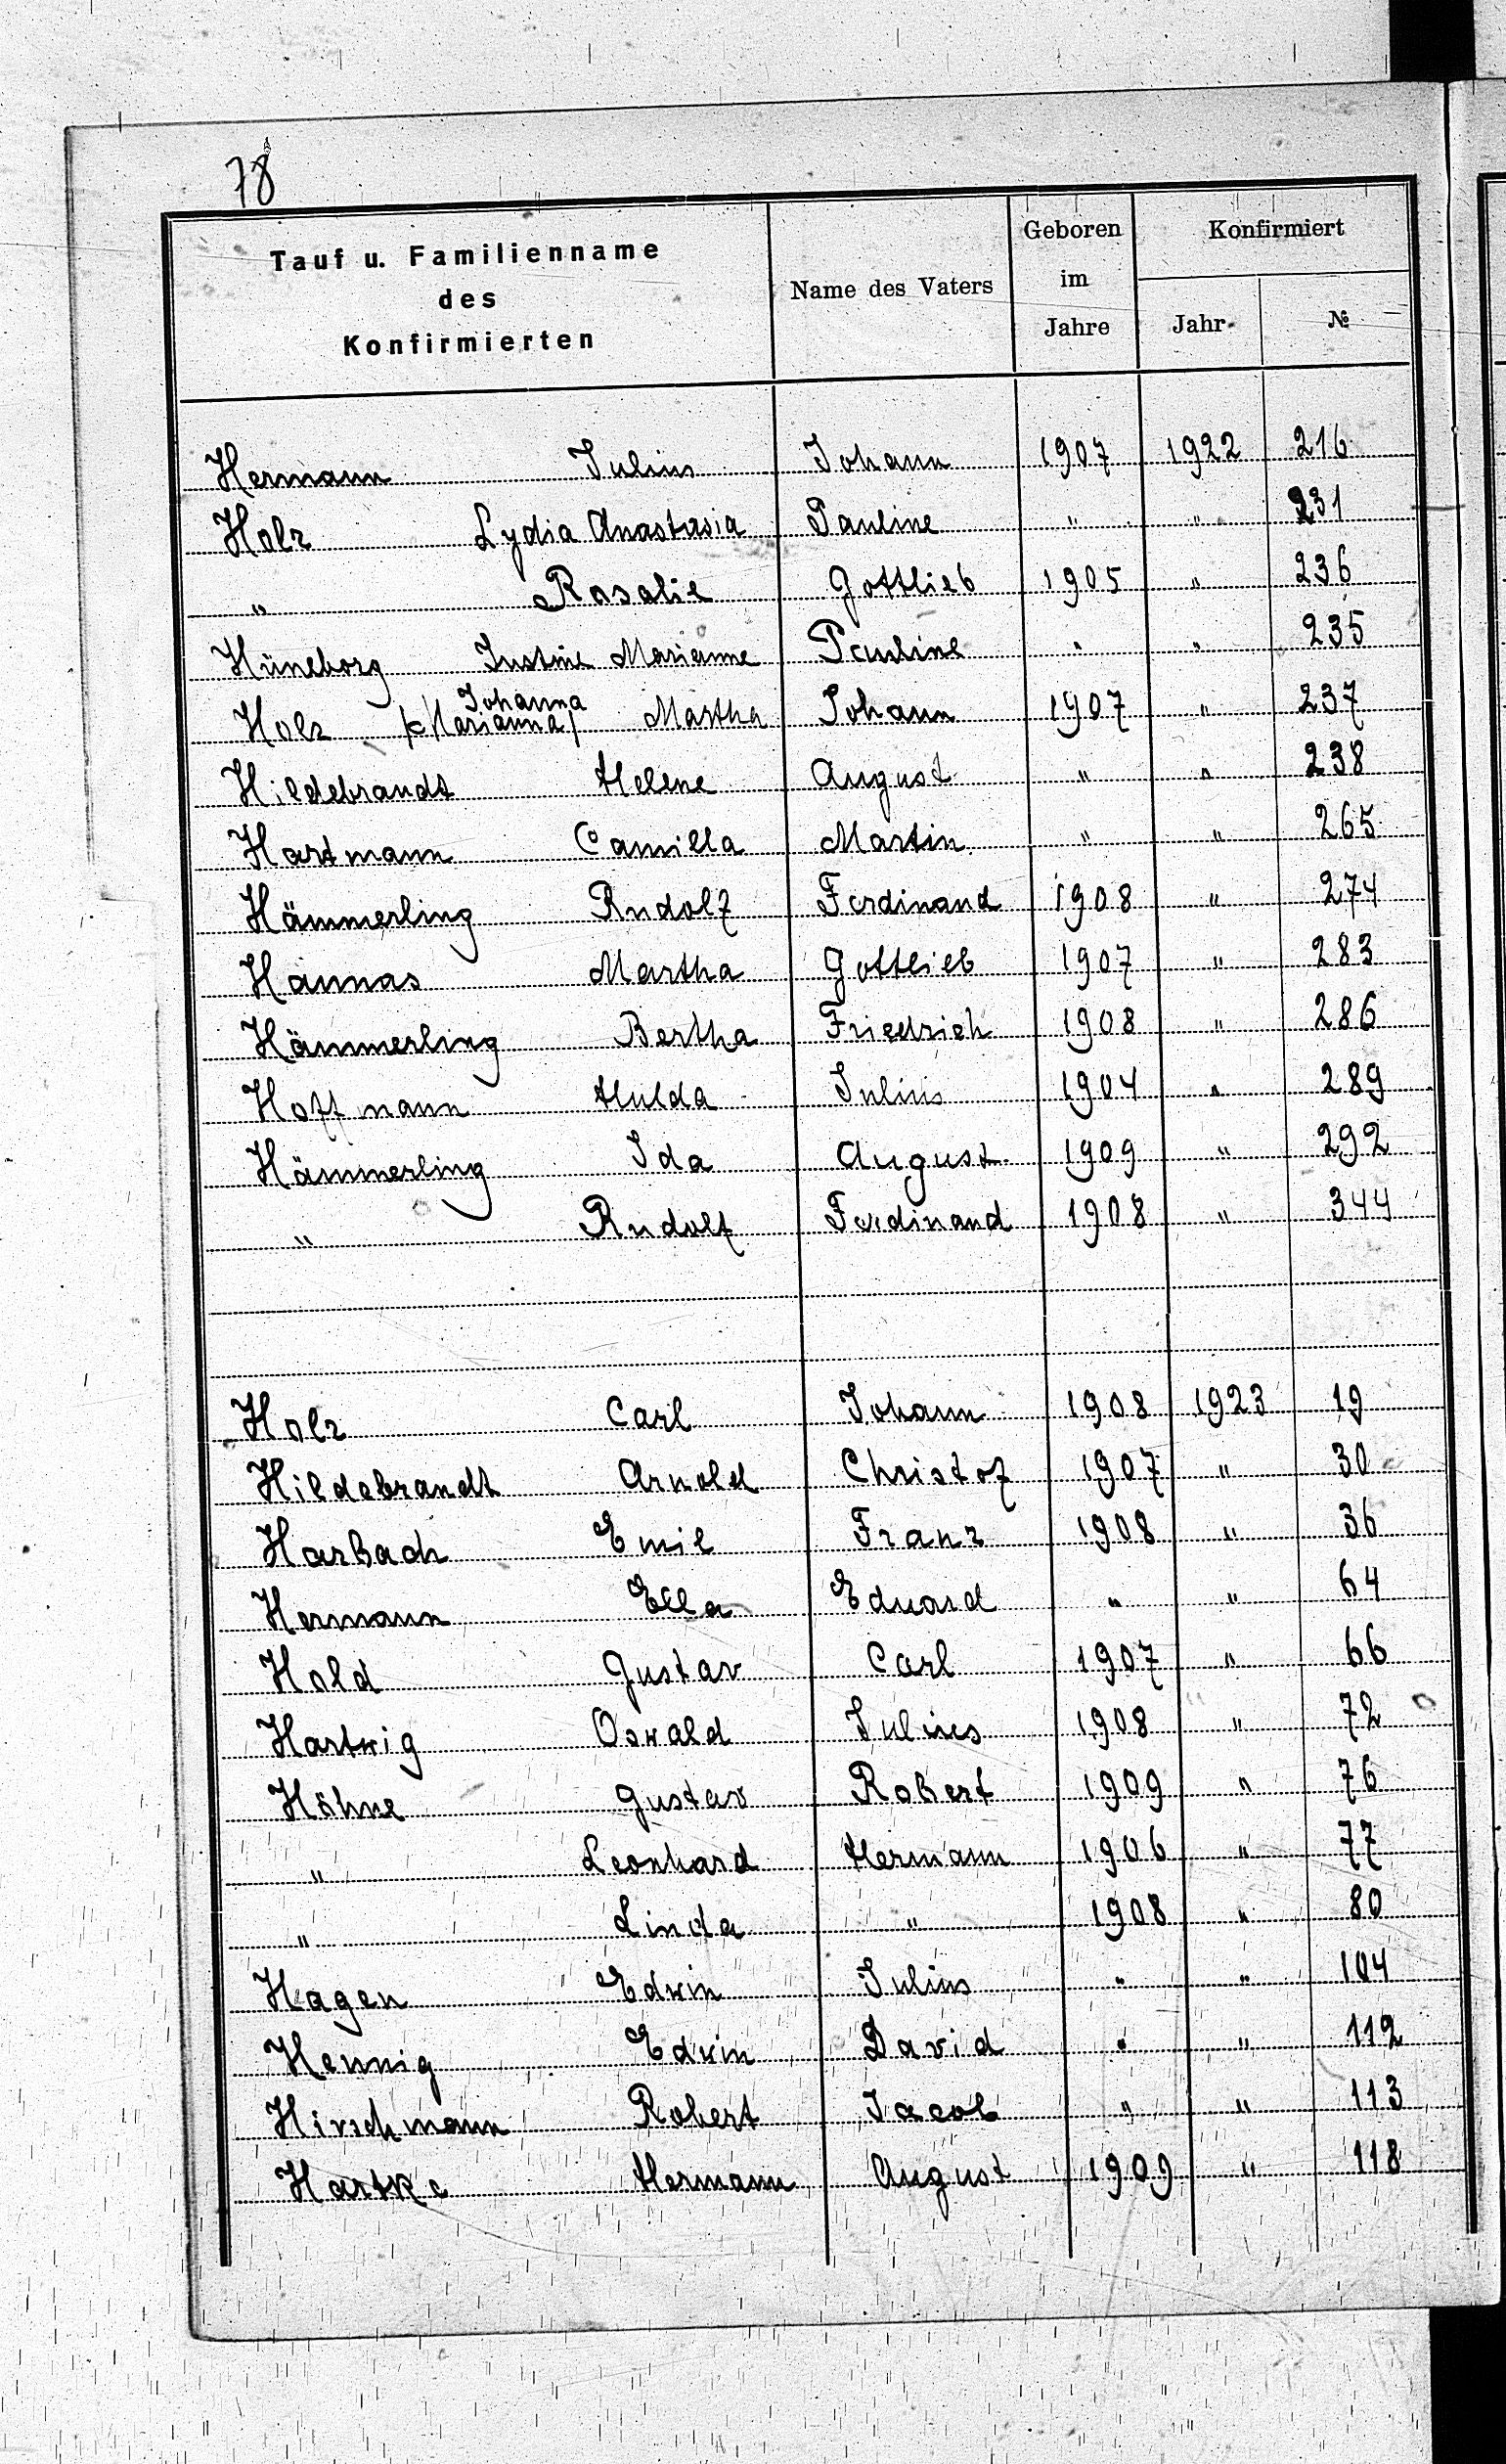 78
Tauf u. Familienname des Konfirmierten | Name des Vaters | Geboren im Jahre | Konfirmiert Jahr | №
Hermann Julius Johann 1907 1922 216
Holz Lydia Anastasia Pauline " " 231
" Rosalie Gottlieb 1905 " 236
Hüneborg Justine Marianne Pauline " " 235
Johanna
Holz /Marianna/ Martha Johann 1907 " 237
Hildebrandt Helene August " " 238
Hartmann Camilla Martin " " 265
Hämmerling Rudolf Ferdinand 1908 " 274
Hannas Martha Gottlieb 1907 " 283
Hämmerling Bertha Friedrich 1908 " 286
Hoffmann Hulda Julius 1904 " 289
Hämmerling Ida August 1909 " 292
" Rudolf Ferdinand 1908 " 344
Holz Carl Johann 1908 1923 19
Hildebrandt Arnold Christof 1907 " 30
Harbach Emil Franz 1908 " 36
Hermann Ella Eduard " " 64
Hold Gustav Carl 1907 " 66
Hartwig Oswald Julius 1908 " 72
Höhne Gustav Robert 1909 " 76
" Leonhard Hermann 1906 " 77
" Linda " 1908 " 80
Hagen Edwin Julius " " 104
Hennig Edwin David " " 112
Hirschmann Robert Jacob " " 113
Hartke Hermann August 1909 " 118